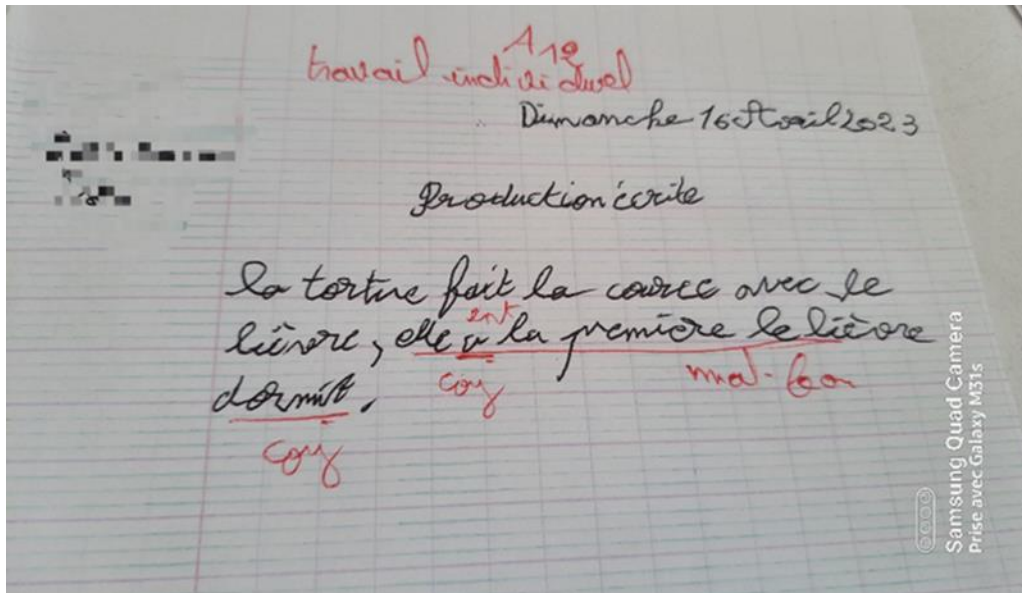 A12
travail individuel
Dimanche 16 Avril 2023
Production écrite
la tortue fait la cource avec le
ent
lièvre, elle a la première le lièvre
coy mal-
dormit.
coy
Samsung Quad Camera
Prise avec Galaxy M31s